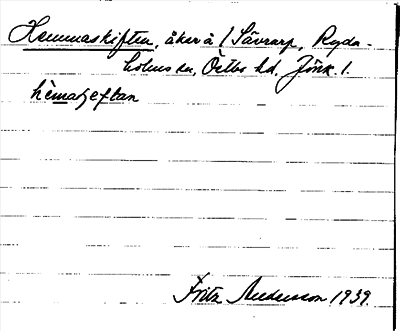 Hemmaskiften, åkrar å / Sävrarp, Ryda-
holms sn, Östbo hd. Jönk. l.
hèmaʃeftan
Fritz Andersson 1939.